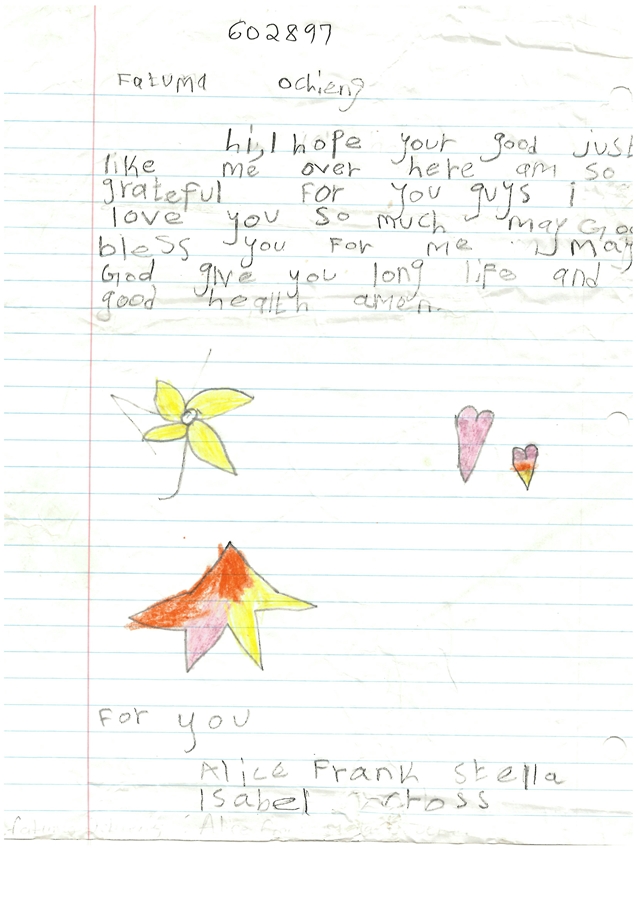 602897
Fatuma Ochieng
hi, I hope your good just
like me over here am so
grateful For you guys i
love you so much may God
bless you For me may
God give you long life and
good health amen.
For you
Alice Frank Stella
Isabel